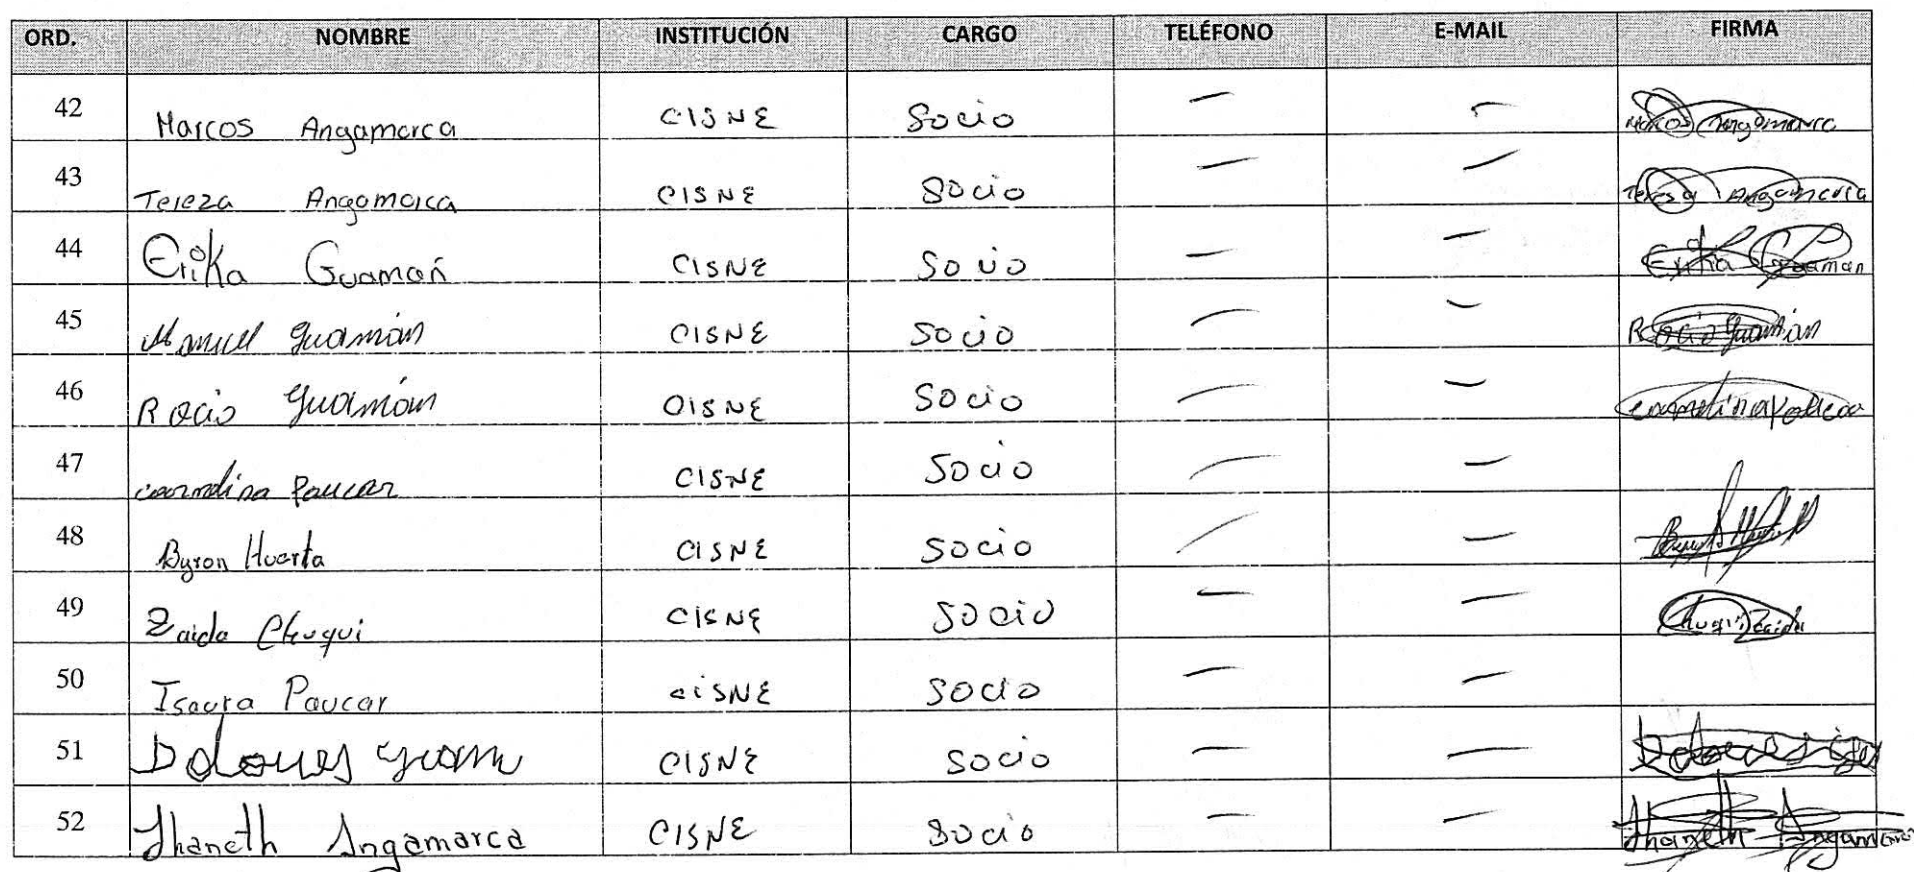 ORD. NOMBRE INSTITUCIÓN CARGO TELÉFONO E-MAIL FIRMA
42 Marcos Angamarca CISNE Socio — — Marcos Angamarca
43 Tereza Angamarca CISNE Socio — — Teresa Angamarca
44 Erika Guamán CISNE Socio — — Erika Guaman
45 Manuel Guamán CISNE Socio — — Rocio Guamán
46 Rocio Guamán CISNE Socio — —
47 carmelina Paucar CISNE Socio — —
48 Byron Huerta CISNE Socio — —
49 Zaida Chuqui CISNE Socio — — Chuqui Zaida
50 Isaura Paucar CISNE Socio — —
51 Dolores CISNE Socio — — Dolores
52 Jhaneth Angamarca CISNE Socio — — Jhaneth Angamarca